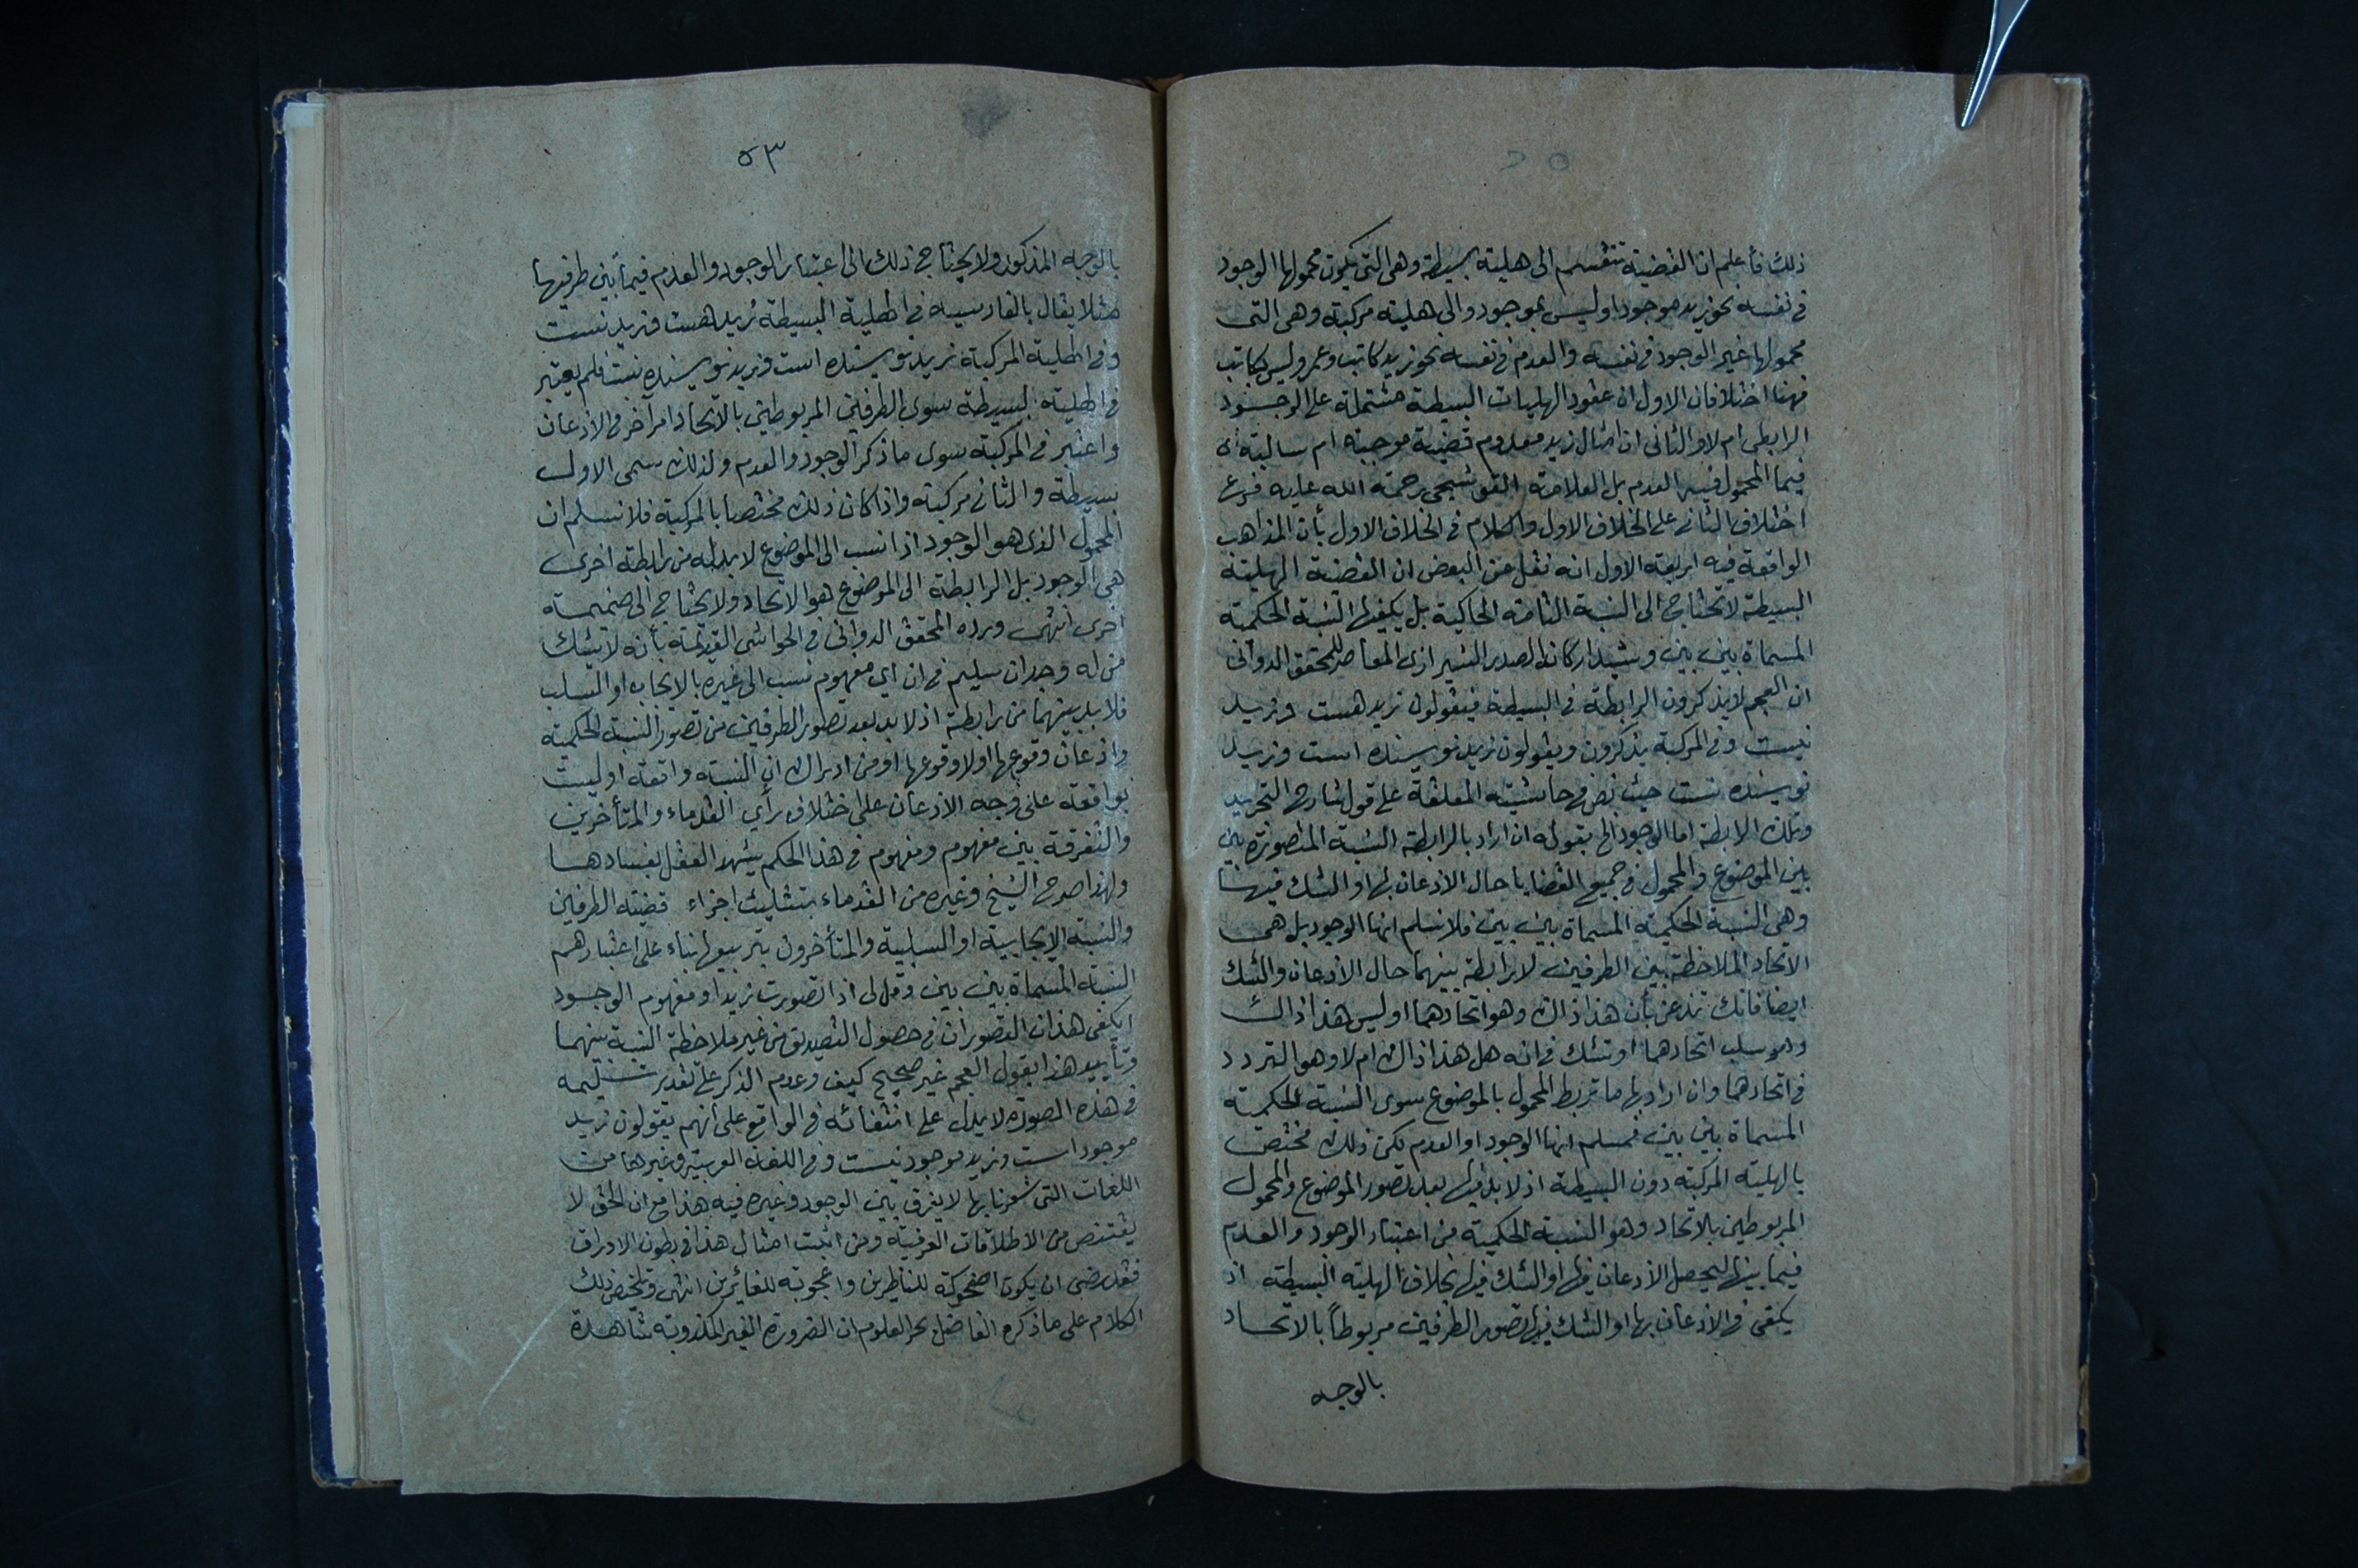 ذلك فأعلم ان القضية تنقسم الى هلية بسيطة وهى التى يكون محمولها الوجود
فى نفسه نحو زيد موجود او ليس بموجود والى هلية مركبة وهى التى
محمولها غير الوجود فى نفسه والعدم فى نفسه نحو زيد كاتب وعمرو ليس بكاتب
فههنا اختلافان الاول ان عقود الهليات البسيطة مشتملة على الوجود
الرابطى ام لا والثانى ان امثال زيد معدوم قضية موجبة ام سالبة اى
فيما المحمول فيه العدم بل العلامة القوشجى رحمة الله عليه فرع
اختلاف الثانى على الخلاف الاول والكلام فى الخلاف الاول بأن المذاهب
الواقعة فيه اربعة الاول انه نقل عن البعض ان القضية الهلية
البسيطة لا تحتاج الى النسبة التامة الحاكية بل يكفيها النسبة الحكمية
المسماة بين بين وشيد اركانه الصدر الشيرازى المعاصر للمحقق الدوانى
ان العجم لا يذكرون الرابطة فى البسيطة فيقولون زيد هست وزيد
نيست وفى المركبة يذكرون ويقولون زيد نويسنده است وزيد
نويسنده نست حيث نص فى حاشيته المعلقة على قول شارح التجريد
وتلك الرابطة اما الوجود الخ بقوله ان اراد بالرابطة النسبة المتصورة بين
بين الموضوع والمحمول فى جميع القضايا حال الاذعان لها او الشك فيها
وهى النسبة الحكمية المسماة بين بين فلا نسلم انها الوجود بل هى
الاتحاد الملاحظة بين الطرفين لا رابطة بينهما حال الاذعان والشك
ايضا فانك تذعن بأن هذا ذاك وهو اتحادهما او ليس هذا ذاك
وهو سلب اتحادهما او تشك فى انه هل هذا ذاك ام لا وهو التردد
فى اتحادهما وان اراد بها ما تربط المحمول بالموضوع سوى النسبة الحكمية
المسماة بين بين فمسلم انها الوجود او العدم لكن ذلك مختص
بالهلية المركبة دون البسيطة اذ لا بد فيها بعد تصور الموضوع والمحمول
المربوطين بلاتحاد وهو النسبة الحكمية من اعتبار الوجود والعدم
فيما بينها ليحصل الاذعان فيها او الشك فيها بخلاف الهلية البسيطة اذ
يكفى فى الاذعان بها او الشك فيها تصور الطرفين مربوطاً بالاتحاد
بالوجه
٥٣
بالوجه المذكور ولا يحتاج ذلك الى اعتبار الوجود والعدم فيما بين طرفيها
مثلا يقال بالفارسيه فى الهلية البسيطة زيد هست وزيد نست
وفى الهلية المركبة زيد نويسنده است وزيد نويسنده نست فلم يعتبر
فى الهلية البسيطة سوى الطرفين المربوطين بالاتحاد امر آخر فى الاذعان
واعتبر فى المركبة سوى ما ذكر الوجود والعدم ولذلك سمى الاول
بسيطة والثانى مركبة واذا كان ذلك مختصا بالمركبة فلا نسلم ان
المحمول الذى هو الوجود اذا نسب الى الموضوع لا بد له من رابطة اخرى
هى الوجود بل الرابطة الى الموضوع هو الاتحاد ولا يحتاج الى ضميمة
اخرى انتهى ورده المحقق الدوانى فى الحواشى القديمة بأنه لا يشك
من له وجدان سليم فى ان اى مفهوم نسب الى غيره بالايجاب او السلب
فلا بد بينهما من رابطة اذ لا بد بعد تصور الطرفين من تصور النسبة الحكمية
واذعان وقوعها او لا وقوعها او من ادراك ان النسبة واقعة او ليست
بواقعة على وجه الاذعان على اختلاف رأى القدماء والمتأخرين
والتفرقة بين مفهوم ومفهوم فى هذا الحكم يشهد العقل بفسادها
ولهذا صرح الشيخ وغيره من القدماء بتثليث اجزاء قضية الطرفين
والنسبة الايجابية او السلبية والمتأخرون بتربيعها بناء على اعتبارهم
النسبة المسماة بين بين وقل لى اذا تصورت زيدا ومفهوم الوجود
ايكفى هذان التصوران فى حصول التصديق من غير ملاحظة النسبة بينهما
وتأييد هذا بقول العجم غير صحيح كيف وعدم الذكر على تقدير تسليمه
فى هذه الصورة لا يدل على انتفائه فى الواقع على انهم يقولون زيد
موجود است وزيد موجود نيست وفى اللغة العربية وغيرها من
اللغات التى شعرنا بها لا يفرق بين الوجود وغيره فيه هذا مع ان الحق لا
يقتنص من الاطلاقات العرفية ومن اثبت امثال هذا فى بطون الاوراق
فقد رضى ان يكون اضحوكة للناظرين واعجوبة للغائرين انتهى وتلخيص ذلك
الكلام على ما ذكره الفاضل بحر العلوم ان الضرورة الغير المكذوبة شاهدة